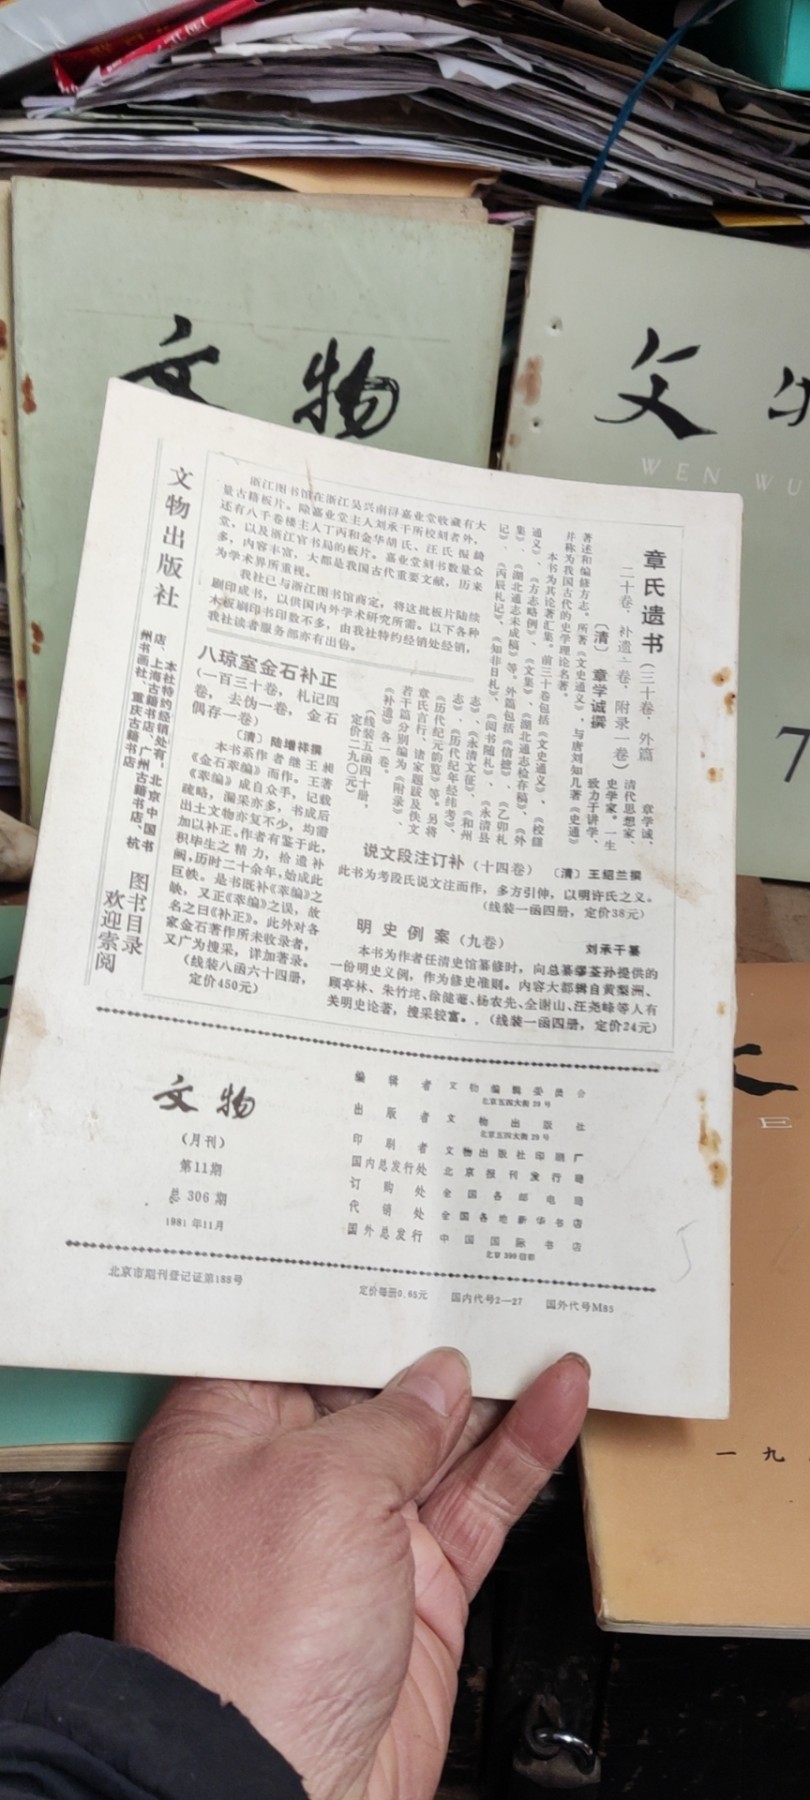 文物
文物
WEN WU
7
文物出版社
本社特约经销处有：北京中国书
店、上海古籍书店、广州古籍书店、杭
州书画社、重庆古籍书店
图书目录
欢迎索阅
浙江图书馆在浙江吴兴南浔嘉业堂收藏有大
量古籍板片。除嘉业堂主人刘承干所校刻者外，
还有八千卷楼主人丁丙和金华胡氏、汪氏振绮
堂，以及浙江官书局的板片。嘉业堂刻书数量众
多，内容丰富，大都是我国古代重要文献，历来
为学术界所重视。
我社已与浙江图书馆商定，将这批板片陆续
刷印成书，以供国内外学术研究所需。以下各种
木板刷印书印数不多，由我社特约经销处经销，
我社读者服务部亦有出售。
章氏遗书（三十卷，外篇
二十卷，补遗一卷，附录一卷）
〔清〕 章学诚撰
章学诚，
清代思想家、
史学家。一生
致力于讲学、
著述和编修方志。所著《文史通义》，与唐刘知几著《史通》
并称为我国古代的史学理论名著。
本书为其论著汇集。前三十卷包括《文史通义》、《校雠
通义》、《方志略例》、《文集》、《湖北通志检存稿》、《外
集》、《湖北通志未成稿》等。外篇包括《信摭》、《乙卯札
记》、《丙辰札记》、《知非日札》、《阅书随札》、《永清县
志》、《永清文征》、《和州
志》、《历代纪年经纬考》、
《历代纪元韵览》等。另将
章氏言行、诸家题跋及佚文
若干篇分别编为《附录》、
《补遗》各一卷。
（线装五函四十册，
定价二九〇元）
八琼室金石补正
（一百三十卷，札记四
卷，去伪一卷，金石
偶存一卷）
〔清〕陆增祥撰
本书系作者继王昶
《金石萃编》而作。王著
《萃编》成自众手，记载
疏略，漏采亦多，书成后
出土文物亦复不少，均需
加以补正。作者有鉴于此，
积毕生之精力，拾遗补
阙，历时二十余年，始成此
巨帙。是书既补《萃编》之
缺，又正《萃编》之误，故
名之曰《补正》。此外对各
家金石著作所未收录者，
又广为搜采，详加著录。
（线装八函六十四册，
定价450元）
说文段注订补（十四卷） 〔清〕王绍兰撰
此书为考段氏说文注而作，多方引伸，以明许氏之义。
（线装一函四册，定价38元）
明史例案（九卷） 刘承干纂
本书为作者任清史馆纂修时，向总纂缪荃孙提供的
一份明史义例，作为修史准则。内容大都辑自黄梨洲、
顾亭林、朱竹垞、徐健菴、杨农先、全谢山、汪尧峰等人有
关明史论著，搜采较富。（线装一函四册，定价24元）
文物
（月刊）
第11期
总 306 期
1981 年11月
编辑者 文物编辑委员会
北京五四大街 29 号
出版者 文物出版社
北京五四大街 29 号
印刷者 文物出版社印刷厂
国内总发行处 北京报刊发行局
订购处 全国各邮电局
代销处 全国各地新华书店
国外总发行 中国国际书店
北京 399 信箱
北京市期刊登记证第188号
定价每册0.65元 国内代号2—27 国外代号M85
一九